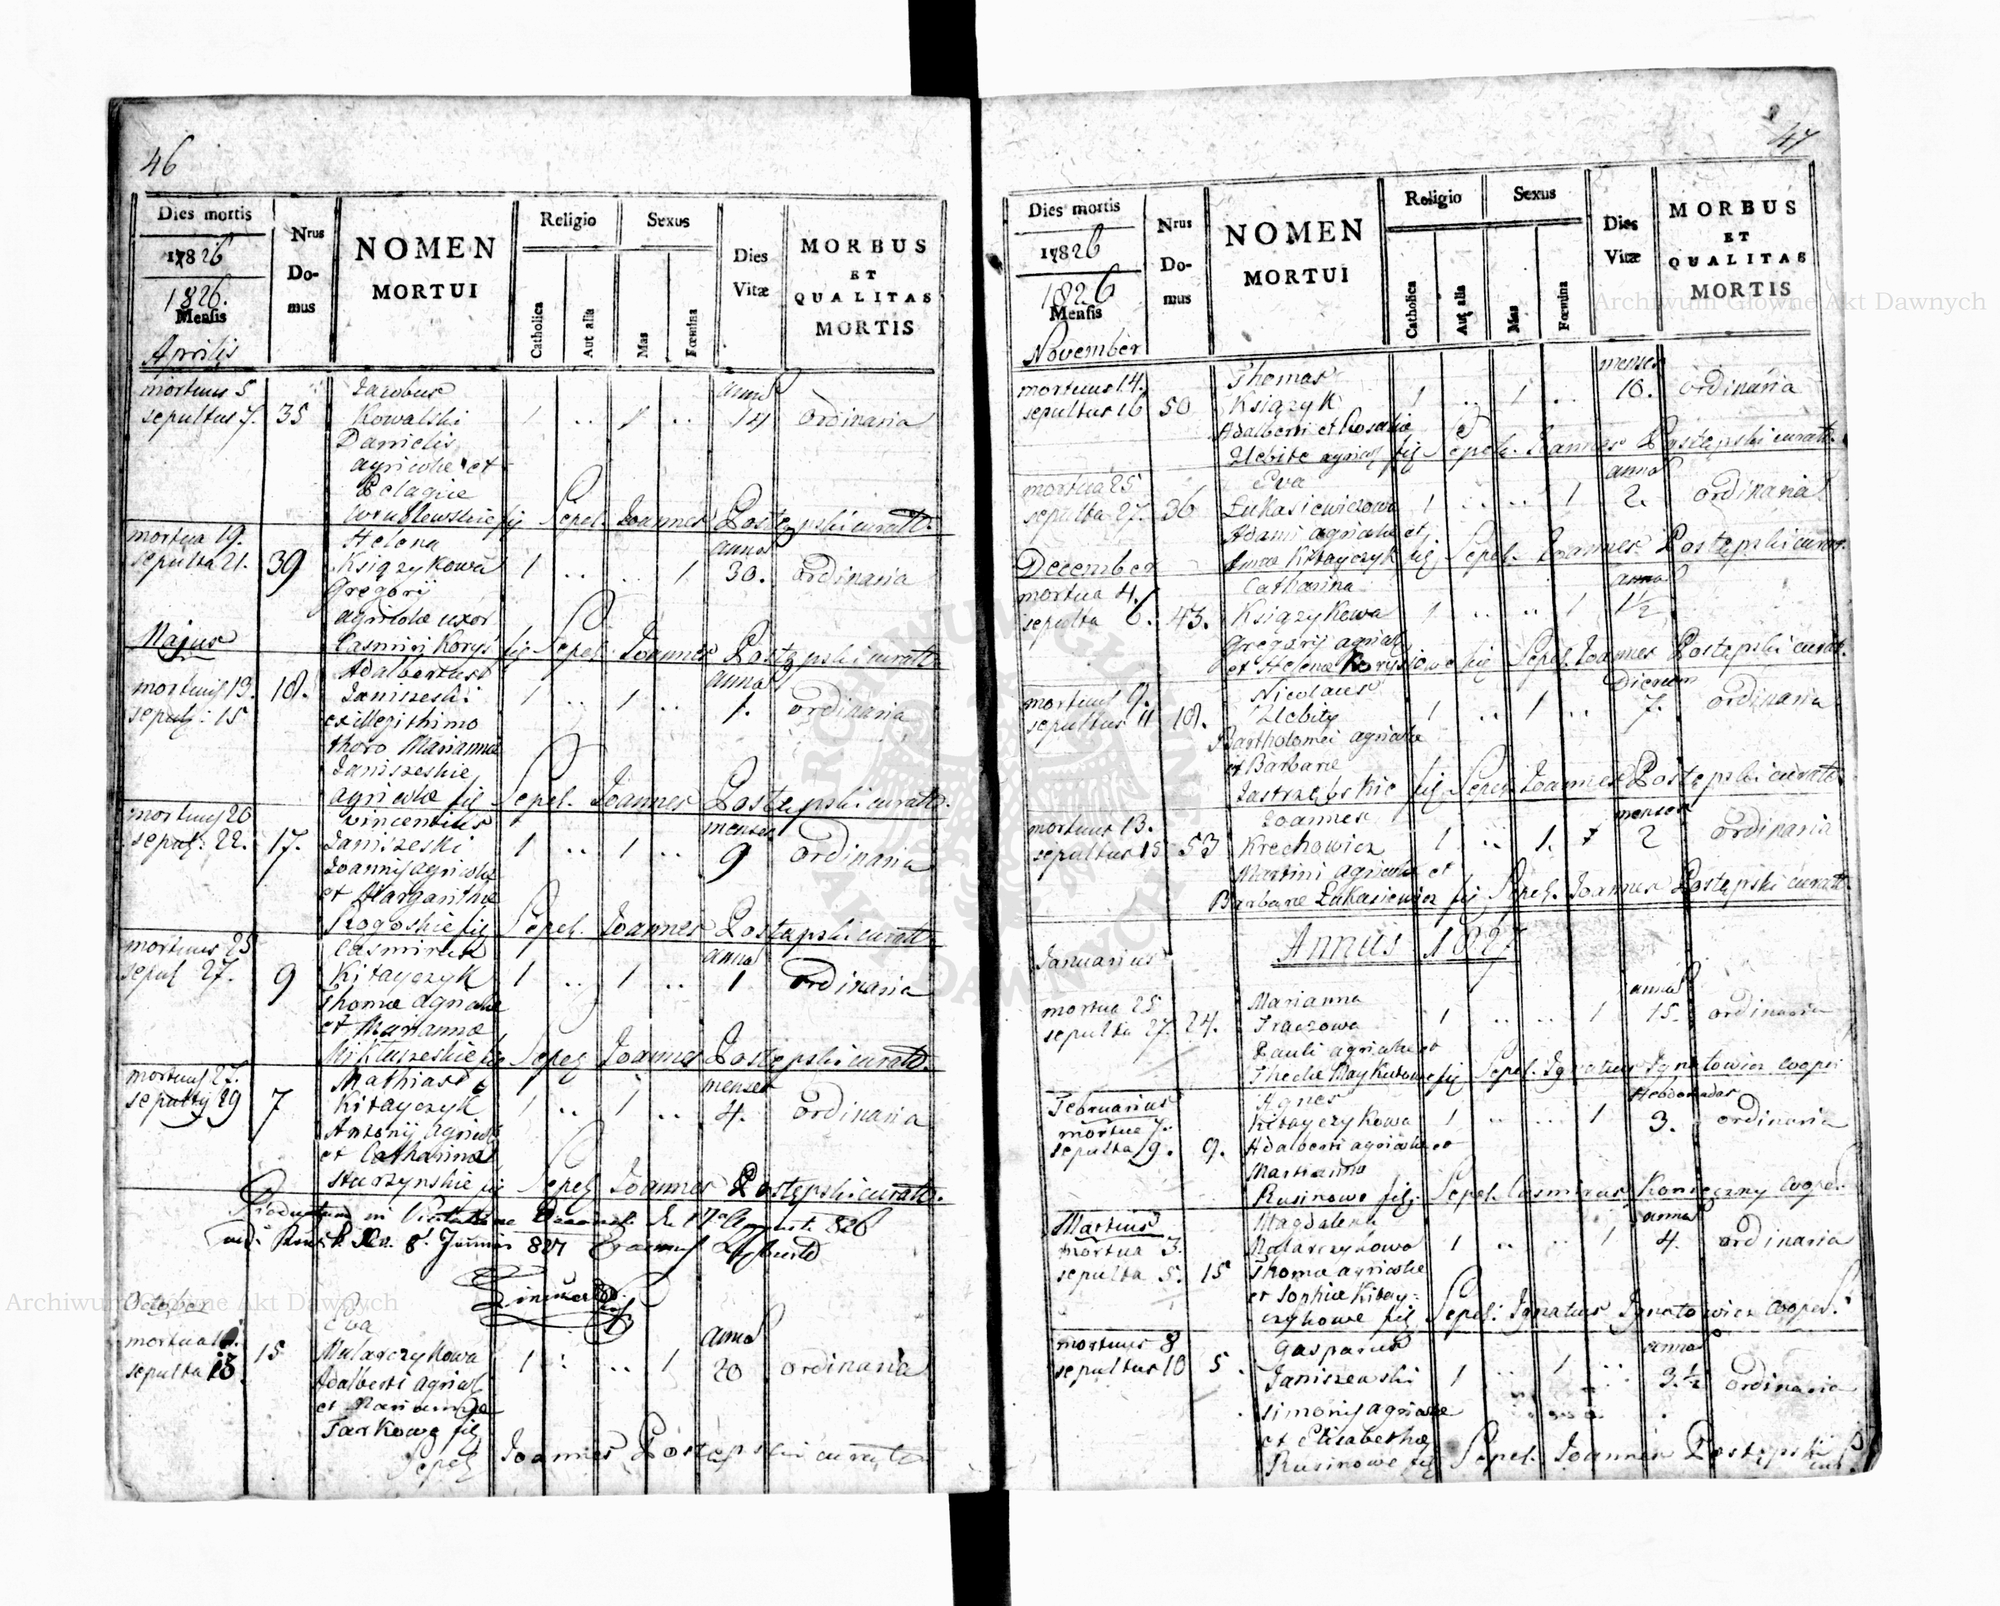 46
Dies mortis
1826
1826.
Mensis
Aprilis
Nrus
Do-
mus
NOMEN
MORTUI
Religio
Catholica
Aut alia
Sexus
Mas
Fœmina
Dies
Vitæ
MORBUS
ET
QUALITAS
MORTIS
mortuus 5
sepultus 7. 35
Jacobus
Kowalski
Danielis
agricolae et
Pelagiæ
Wrublewskie fil
1 .. 1 ..
anno
14
ordinaria
Sepel. Joannes Postępski curatt.
mortua 19.
sepulta 21. 39
Helena
Książykowa
Gregorij
agricolæ uxor
Casimiri Koryś fil
1 .. .. 1
anno
30.
ordinaria
Sepel. Joannes Postępski curatt.
Majus
mortuus 13.
sepult: 15
18.
Adalbertus
Janiszeski
ex illegithimo
thoro Marianna
Janiszeskie
agricolæ fil
1 .. 1 ..
anno
1.
ordinaria
Sepel. Joannes Postępski curatt.
mortuus 20
sepult: 22. 17.
Vincentius
Janiszeski
Joannis agricolæ
et Margarithæ
Rogoskie fil
1 .. 1 ..
menses
9
ordinaria
Sepel. Joannes Postępski curatt.
mortuus 25
sepul 27. 9
Casmirus
Kitayczyk
Thomæ agricolæ
et Mariannæ
Mikłuszeskie fil
1 .. 1 ..
anno
1
ordinaria
Sepel Joannes Postępski curatt.
mortuus 27.
sepultus 29 7
Mathias
Kitayczyk
Antonij agricol
et Catharinæ
Hurzynskie fil
1 .. 1 ..
menses
4.
ordinaria
Sepel Joannes Postępski curatt.
Productum in Visitatione Decanali de 17a August. 826
8. Januar 827
October
mortua
sepulta 13. 15
Eva
Malarczykowa
Adalberti agricol
et Mariannæ
Tarkowe fil
1 : .. 1
anno
20
ordinaria
Sepel Joannes Postępski curatt
47
Dies mortis
1826
1826
Mensis
November
Nrus
Do-
mus
NOMEN
MORTUI
Religio
Catholica
Aut alia
Sexus
Mas
Fœmina
Dies
Vitæ
MORBUS
ET
QUALITAS
MORTIS
mortuus 14.
sepultus 16 50
Thomas
Książyk
Adalberti et Rosalie
Zlebite agricol fil
1 .. 1 ..
menses
10.
ordinaria
Sepel. Joannes Postępski curatt.
mortua 25
sepulta 27. 36
Eva
Łukasiewiczowa
Adami agricolæ et
Annæ Kitayczyk fil
1 .. .. 1
anno
2.
ordinaria
Sepel. Joannes Postępski curatt.
December
mortua 4.
sepulta 6. 43.
Catharina
Książykowa
Gregorij agricol
et Helena Korysiowe fil
1 .. .. 1
anno
1½
Sepel. Joannes Postępski curatt.
mortuus 9.
sepultus 11 18.
Nicolaus
Zlebity
Bartholomei agricolæ
et Barbaræ
Jastrzębskie fil
1 .. 1 ..
Dierum
7.
ordinaria
Sepel Joannes Postępski curatt.
mortuus 13.
sepultus 15 53
Joannes
Krechowicz
Martini agricolæ et
Barbaræ Łukasiewicz fil
1 .. 1.
menses
2
ordinaria
Sepel. Joannes Postępski curatt.
Annus 1827
Januarius
mortua 25
sepulta 27. 24.
Marianna
Traczowa
Pauli agricolæ et
Theclæ Maykutowe fil
1 .. .. 1
anno
15.
ordinaria
Sepel. Ignatius Ignatowicz Cooper
Februarius
mortua 7.
sepulta 9. 9.
Agnes
Kitayczykowa
Adalberti agricolæ et
Marianna
Rusinowe fil:
1 .. ... 1
Hebdomadas
3.
ordinaria
Sepel. Casmirus Konieczny Cooper.
Martius
mortua 3.
sepulta 5. 15
Magdalena
Malarczykowa
Thomæ agricolæ
et Sophiæ Kitay-
czykowe fil
1 .. .. 1
anno
4.
ordinaria
Sepel: Ignatius Ignatowicz Cooper.
mortuus 8
sepultus 10 5.
Gasparus
Janiszewski
Simonis agricolæ
et Elisabethæ
Rusinowe fil
1 .. 1 ..
anno
3.½
ordinaria
Sepel. Joannes Postępski
cur.
Archiwum Główne Akt Dawnych
Archiwum Główne Akt Dawnych
ARCHIWUM GŁÓWNE AKT DAWNYCH